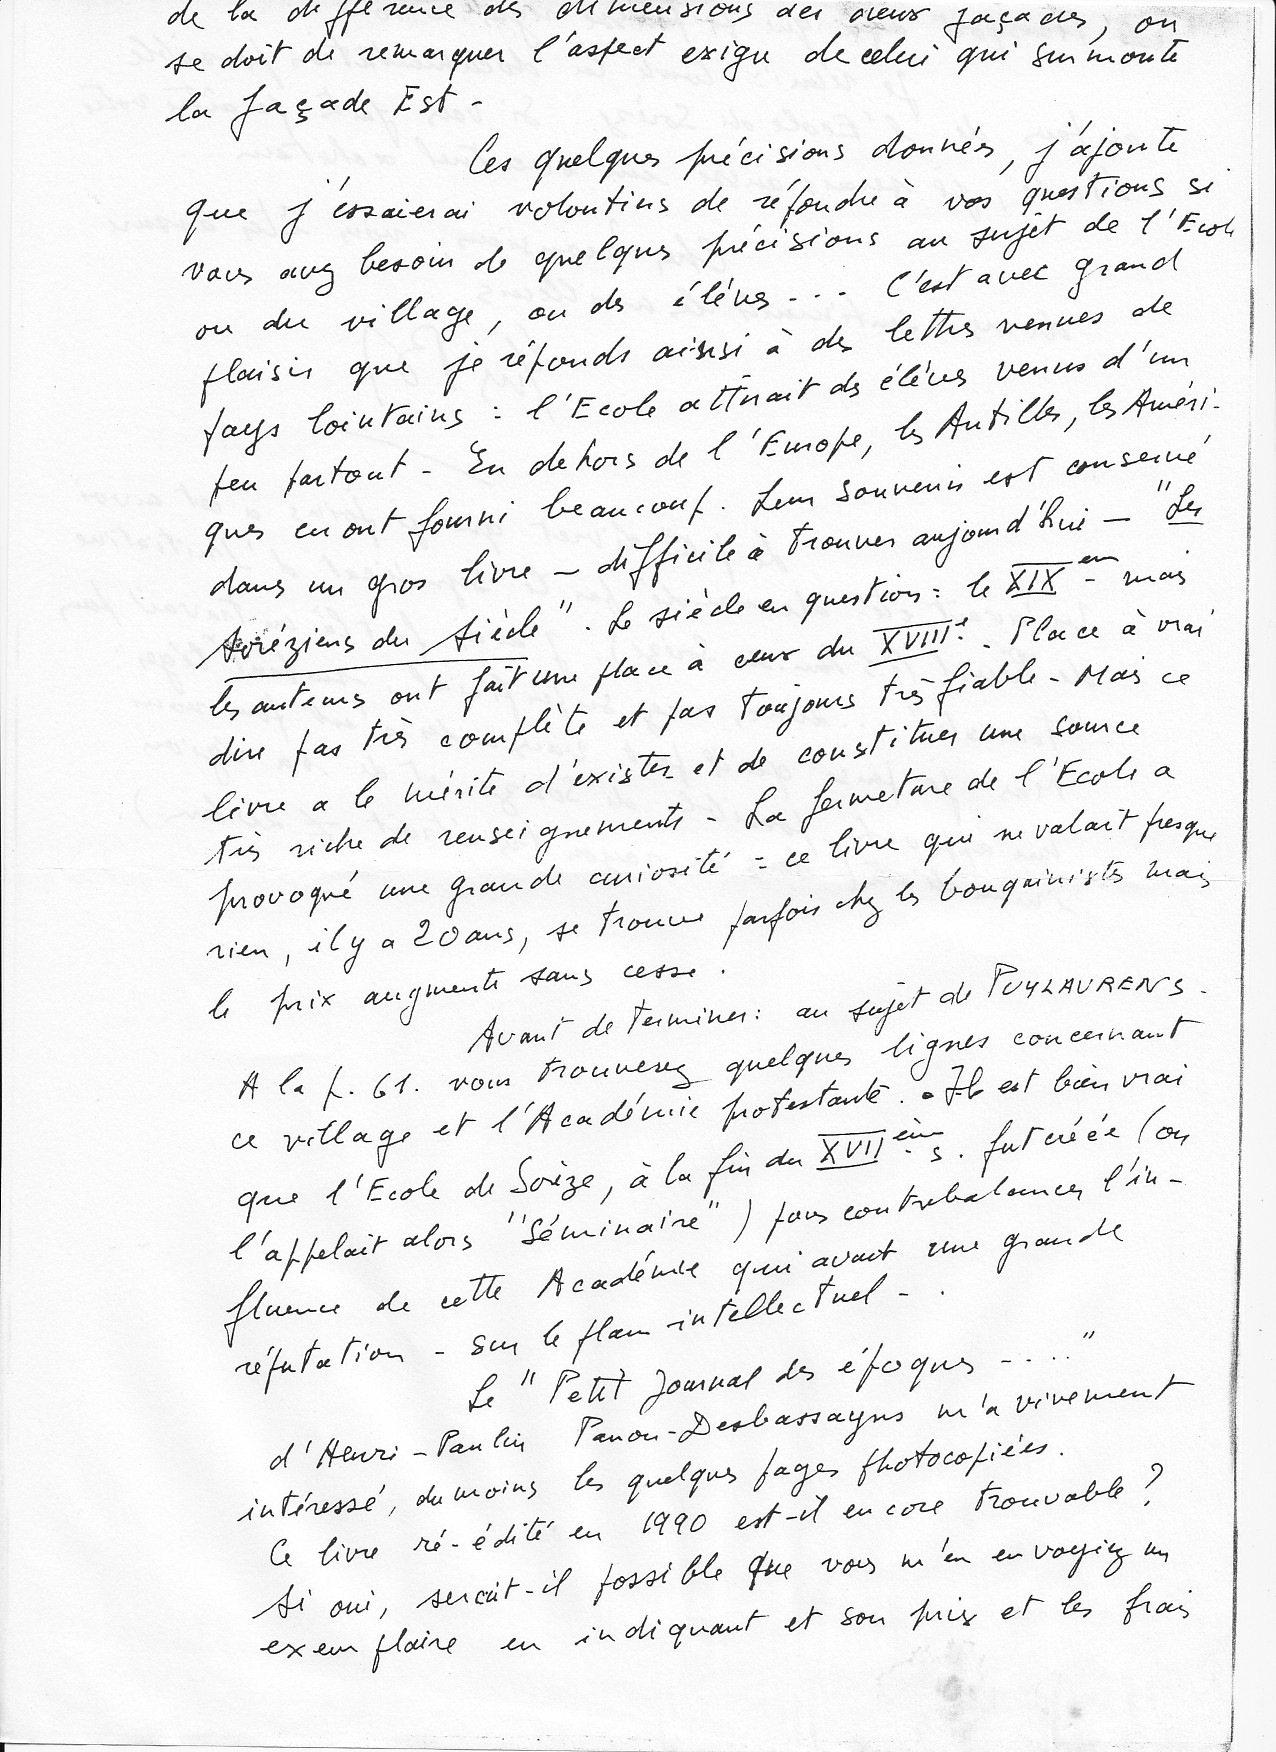 de la différence des dimensions des deux façades, on
se doit de remarquer l'aspect exigu de celui qui surmonte
la façade Est -
Ces quelques précisions données, j'ajoute
que j'essaierai volontiers de répondre à vos questions si
vous avez besoin de quelques précisions au sujet de l'Ecole
ou du village, ou des élèves - - - C'est avec grand
plaisir que je réponds ainsi à des lettres venues de
pays lointains : l'Ecole attirait des élèves venus d'un
peu partout - En dehors de l'Europe, les Antilles, les Améri-
ques en ont fourni beaucoup. Leur souvenir est conservé
dans un gros livre - difficile à trouver aujourd'hui - "Les
Soréziens du Siècle". Le siècle en question : le XIXème - mais
les auteurs ont fait une place à ceux du XVIIIe. Place à vrai
dire pas très complète et pas toujours très fiable - Mais ce
livre a le mérite d'exister et de constituer une source
très riche de renseignements - La fermeture de l'Ecole a
provoqué une grande curiosité : ce livre qui ne valait presque
rien, il y a 20 ans, se trouve parfois chez les bouquinistes mais
le prix augmente sans cesse.
Avant de terminer : au sujet de PUYLAURENS.
A la p. 61. vous trouverez quelques lignes concernant
ce village et l'Académie protestante. Il est bien vrai
que l'Ecole de Sorèze, à la fin du XVIIème s. fut créée (on
l'appelait alors "Séminaire") pour contrebalancer l'in-
fluence de cette Académie qui avait une grande
réputation - sur le plan intellectuel - .
Le "Petit Journal des époques - - .."
d'Henri-Paulin Panon-Desbassayns m'a vivement
intéressé, du moins les quelques pages photocopiées.
Ce livre ré-édité en 1990 est-il encore trouvable ?
Si oui, serait-il possible que vous m'en envoyiez un
exemplaire en indiquant et son prix et les frais